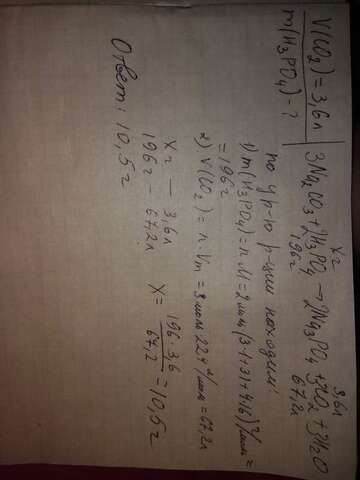 V(CO₂) = 3,6 л
m(H₃PO₄) - ?
x г 3,6 л
3Na₂CO₃ + 2H₃PO₄ → 2Na₃PO₄ + 3CO₂ + 3H₂O
196 г 67,2 л
по ур-ю р-ции находим:
1) m(H₃PO₄) = n·M = 2 моль (3·1+31+4·16) г/моль =
= 196 г
2) V(CO₂) = n·Vm = 3 моль 22,4 л/моль = 67,2 л
x г — 3,6 л
196 г — 67,2 л x = 196 · 3,6 / 67,2 = 10,5 г
Ответ: 10,5 г